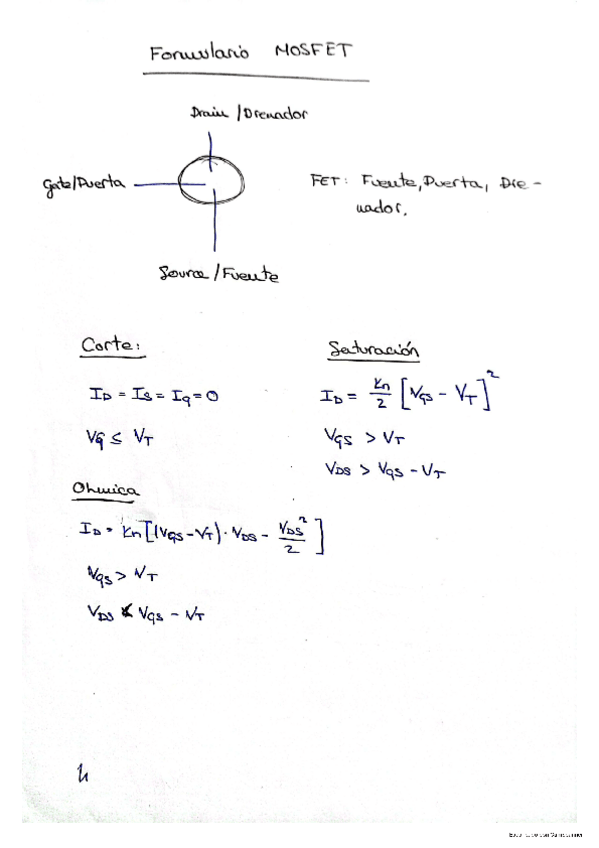 Formulario MOSFET
Drain / Drenador
Gate/Puerta
FET: Fuente, Puerta, Dre-
nador.
Source / Fuente
Corte:
I_D = I_S = I_g = 0
V_G ≤ V_T
Saturación
I_D = Kn/2 [V_GS - V_T]^2
V_GS > V_T
V_DS > V_GS - V_T
Ohmica
I_D = Kn[(V_GS - V_T) · V_DS - V_DS^2/2]
V_GS > V_T
V_DS < V_GS - V_T